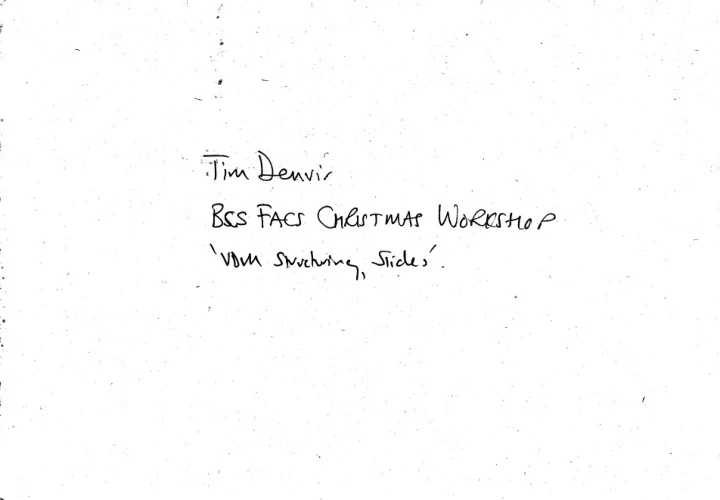 Tim Denvir
BCS FACS CHRISTMAS WORKSHOP
'VDM Structuring, Slides'.